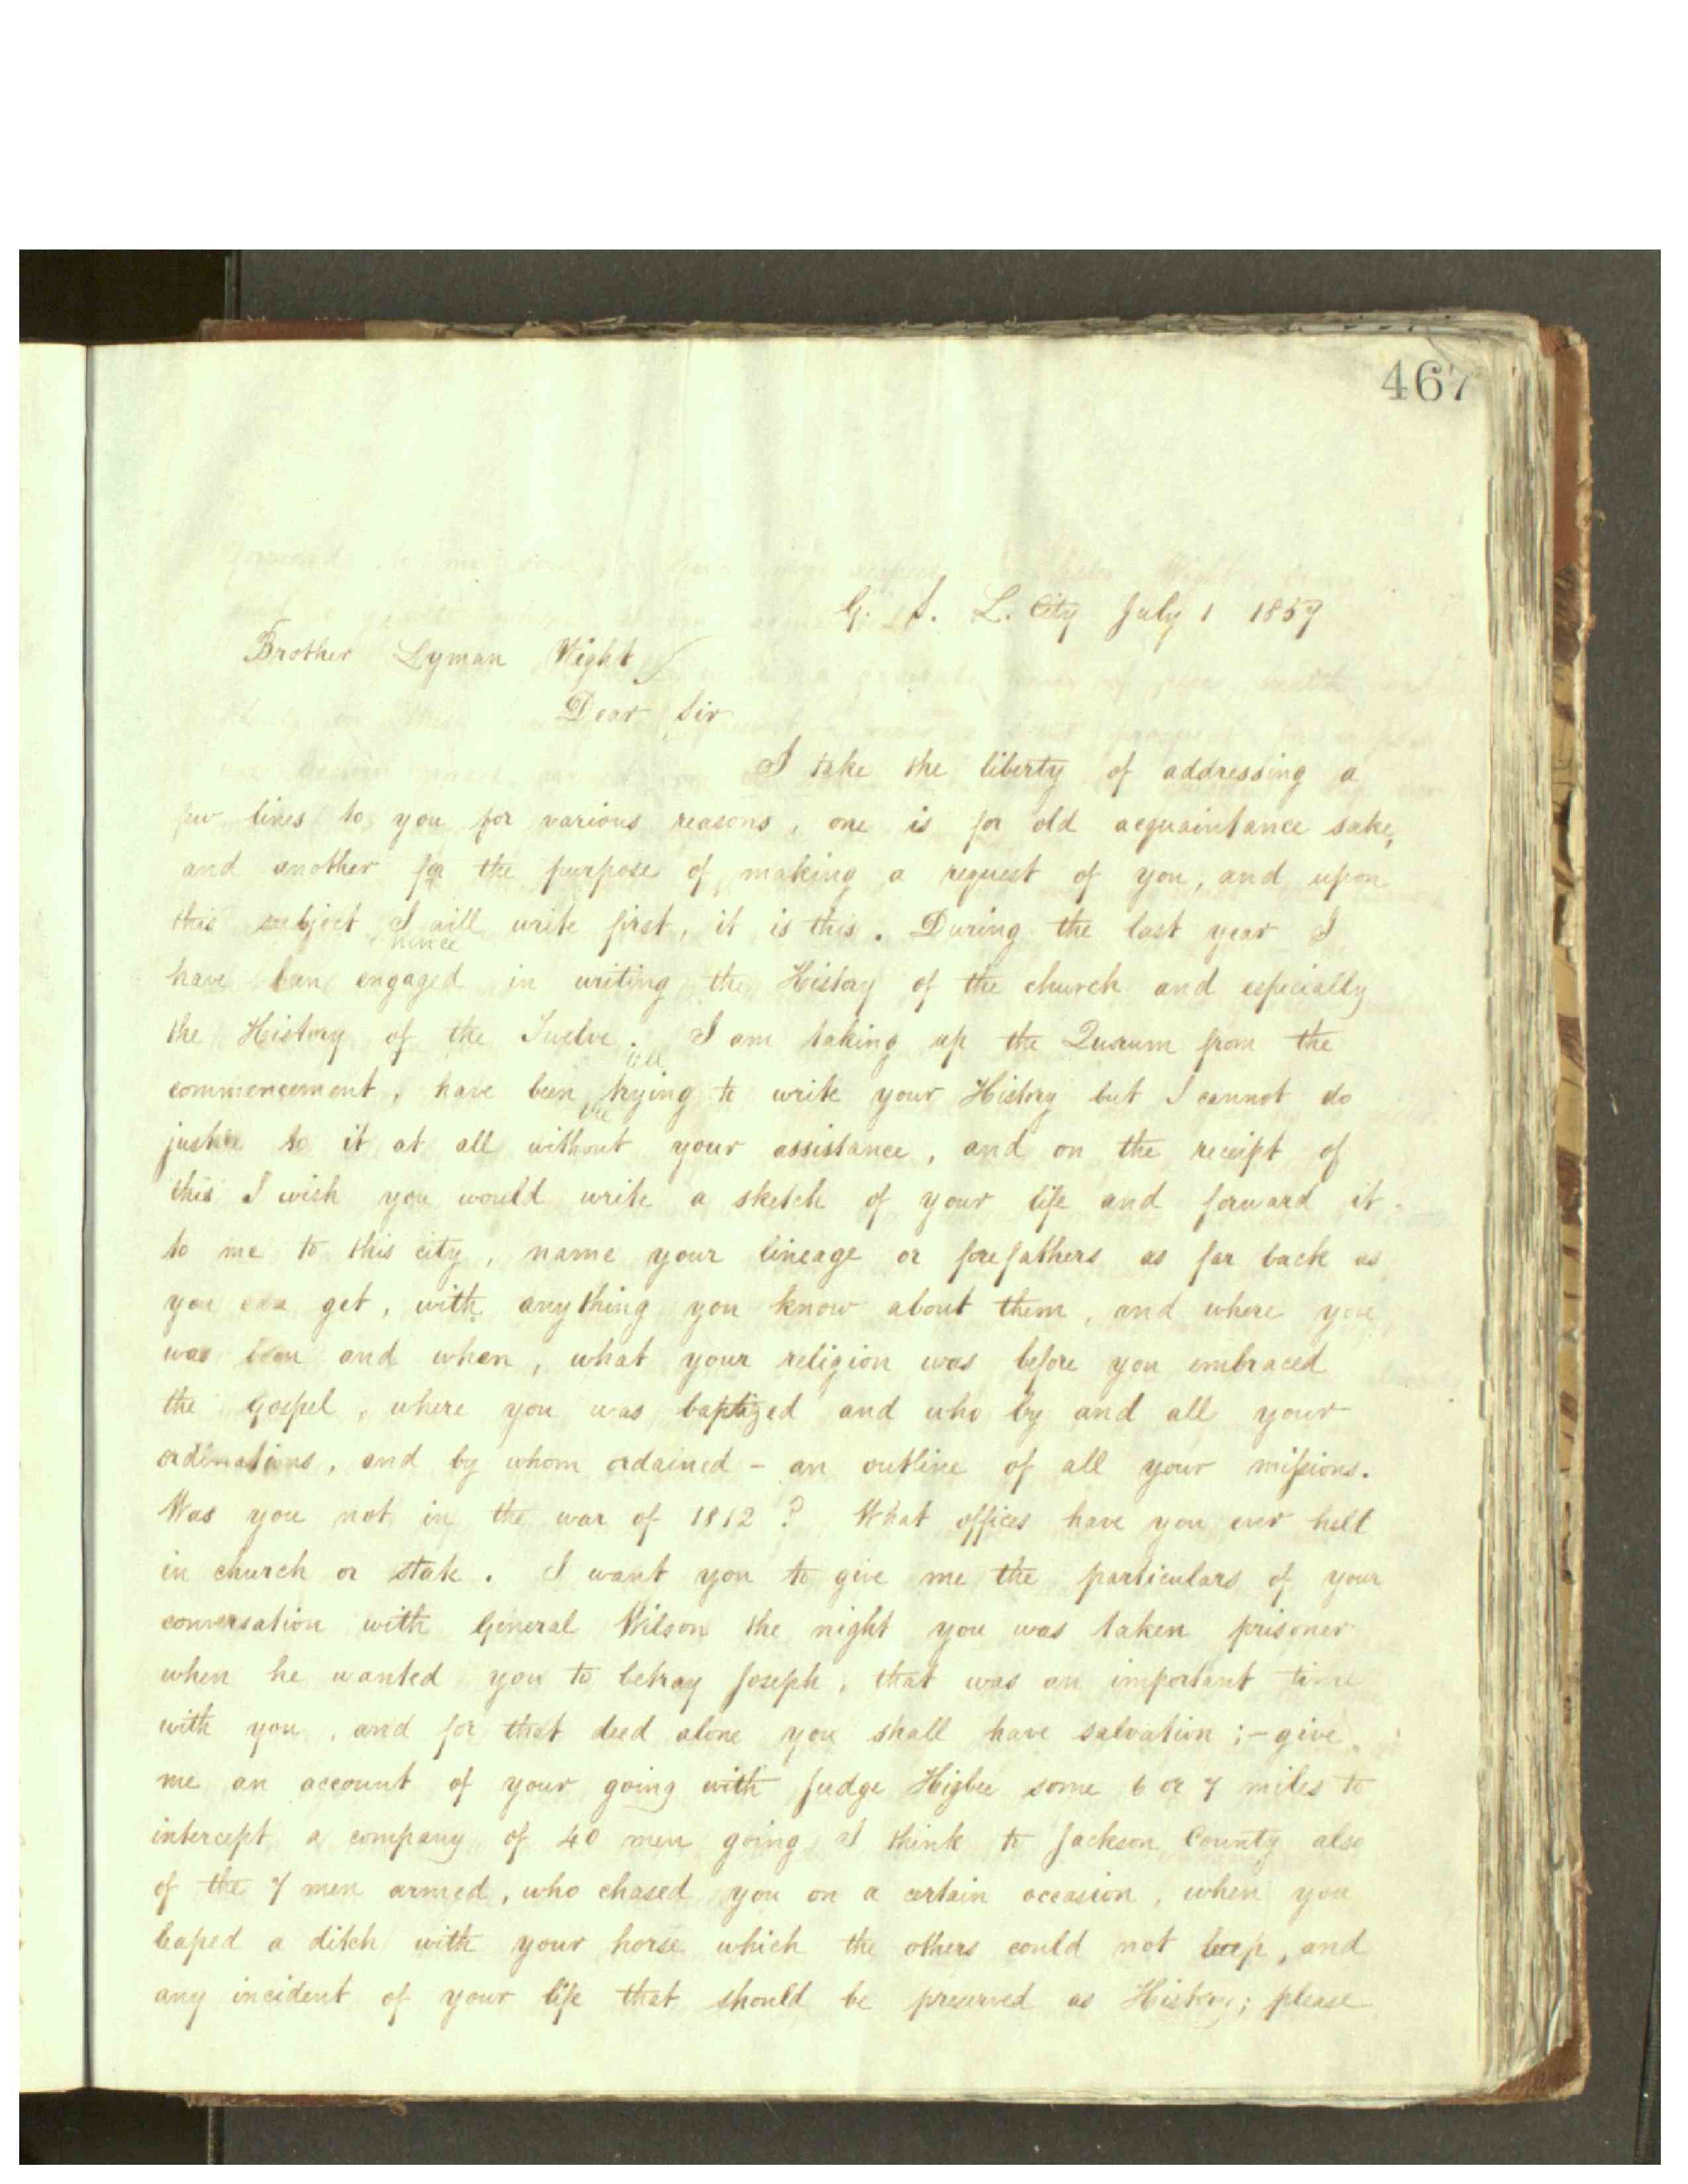 467
G. S. L. City July 1 1857
Brother Lyman Wight
Dear Sir
I take the liberty of addressing a
few lines to you for various reasons, one is for old acquaintance sake,
and another for the purpose of making a request of you, and upon
this subject I will write first, it is this. During the last year I
have been engaged in writing the History of the church and especially
the History of the Twelve. I am taking up the Quorum from the
commencement, have been trying to write your History but I cannot do
justice to it at all without your assistance, and on the receipt of
this I wish you would write a sketch of your life and forward it
to me to this city, name your lineage or forefathers as far back as
you can get, with anything you know about them, and where you
was born and when, what your religion was before you embraced
the gospel, where you was baptized and who by and all your
ordinations, and by whom ordained - an outline of all your missions.
Was you not in the war of 1812? What offices have you ever held
in church or state. I want you to give me the particulars of your
conversation with General Wilson the night you was taken prisoner
when he wanted you to betray Joseph, that was an important time
with you, and for that deed alone you shall have salvation;- give
me an account of your going with Judge Higbee some 6 or 7 miles to
intercept a company of 40 men going I think to Jackson County also
of the 7 men armed, who chased you on a certain occasion, when you
leaped a ditch with your horse which the others could not leep, and
any incident of your life that should be preserved as History; please